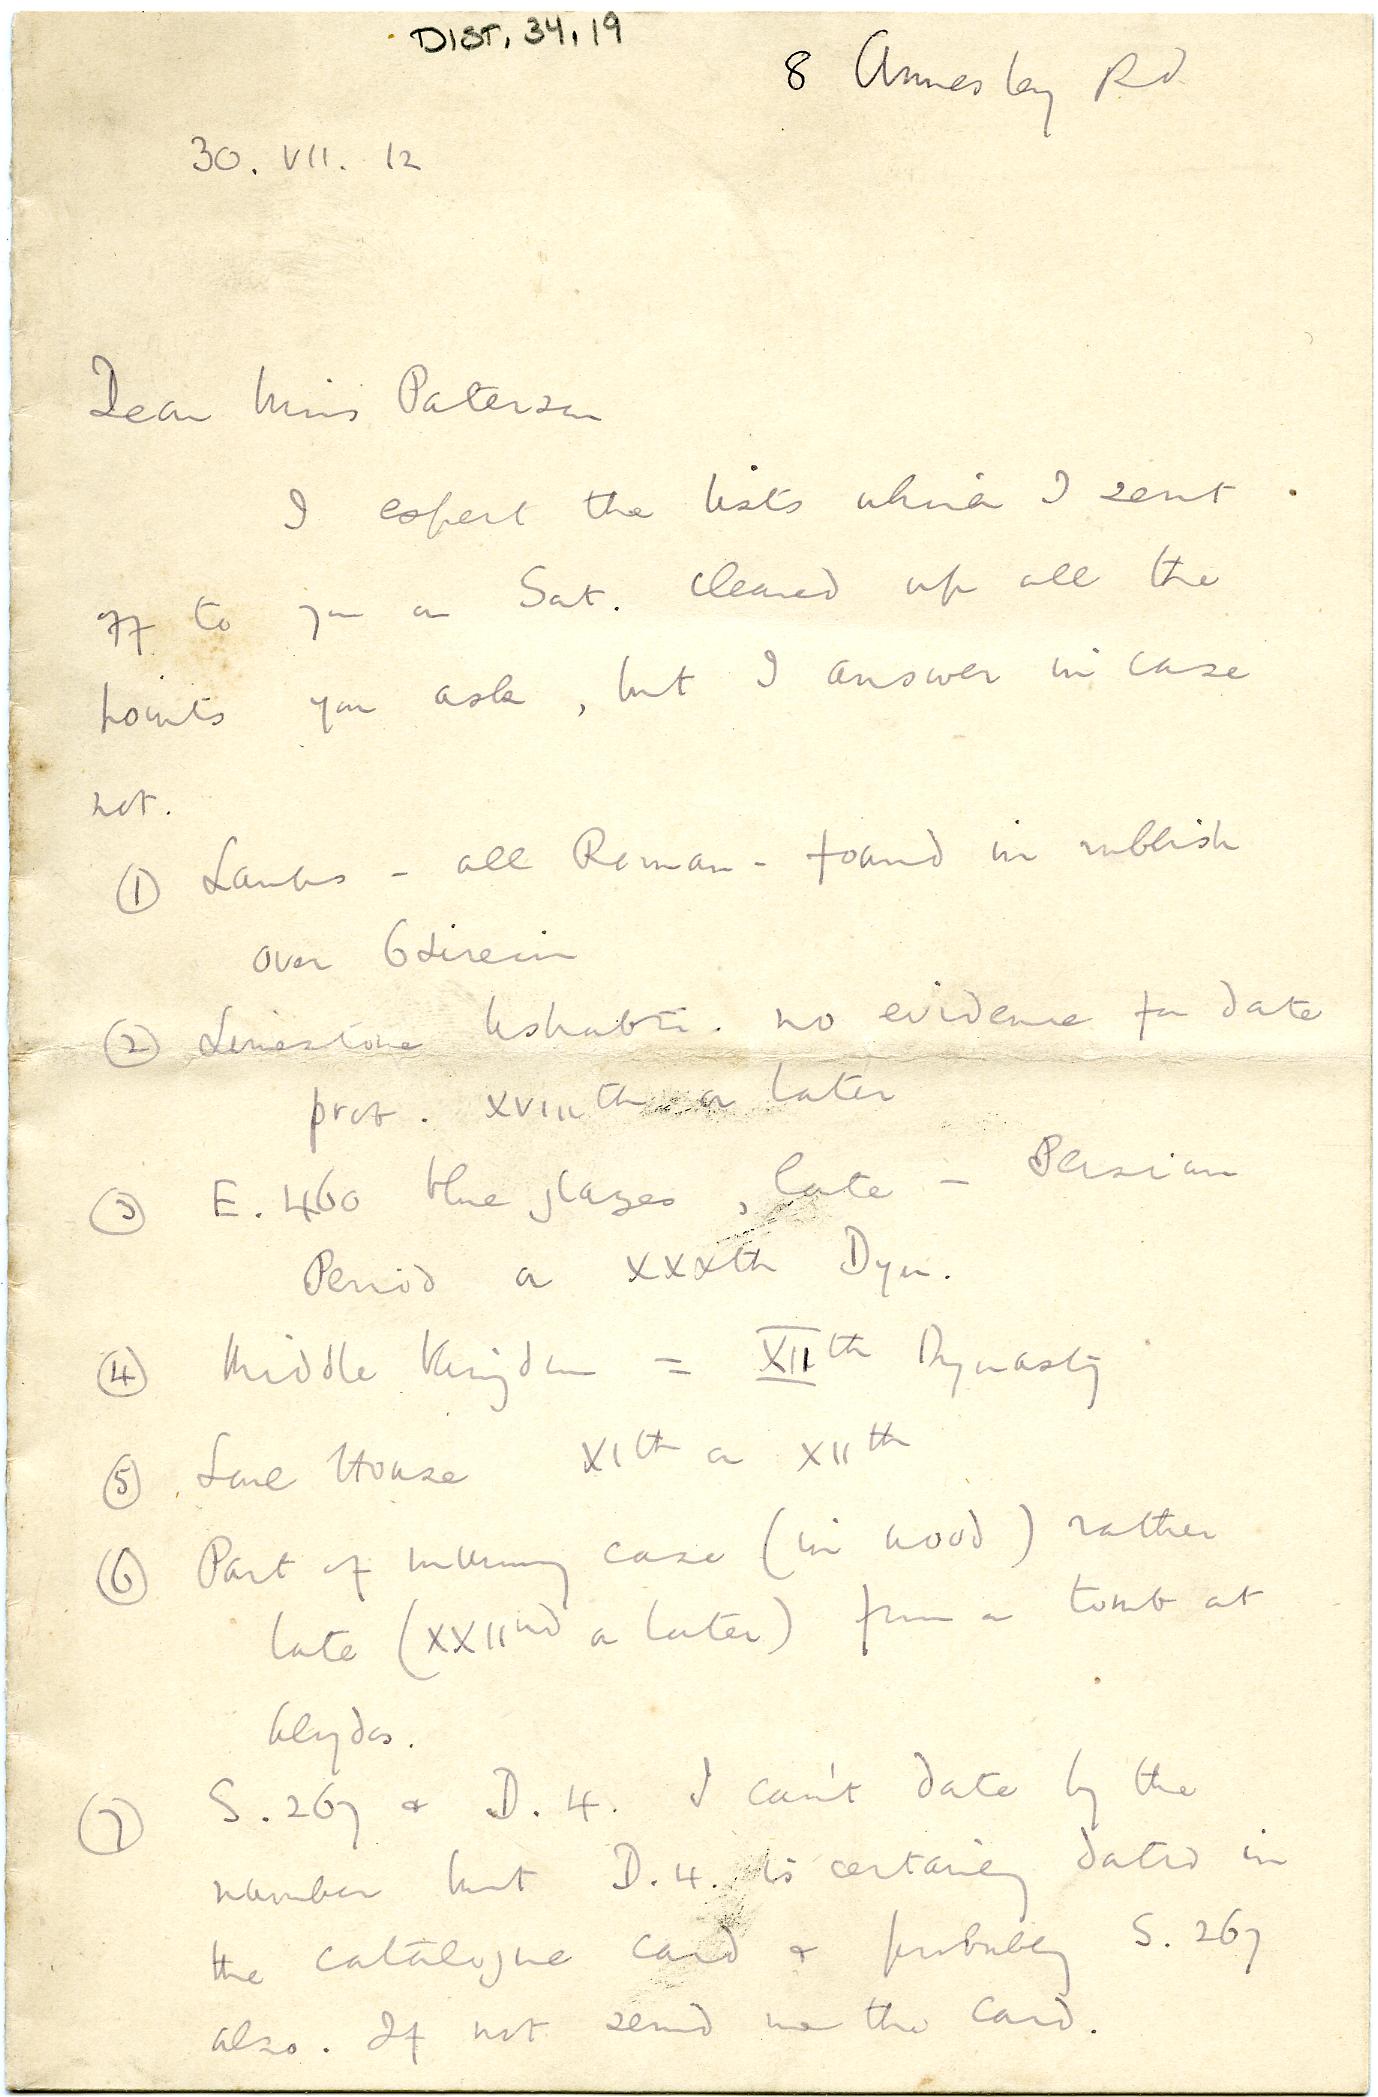 DIST. 34.19
8 Annesley Rd
30. VII. 12
Dear Miss Paterson
I expect the lists which I sent
off to you on Sat. cleared up all the
points you ask, but I answer in case
not.
① Lamps - all Roman - found in rubbish
over Osireion
② Limestone Ushabti. no evidence for date
prob. XVIIIth or later
③ E. 460 blue glazes, late - Persian
Period or XXXth Dyn.
④ Middle Kingdom = XIIth Dynasty
⑤ Soul House XIth or XIIth
⑥ Part of mummy case (in wood) rather
late (XXIInd or later) from a tomb at
Abydos.
⑦ S. 267 & D. 4. I can't date by the
number but D. 4. is certainly dated in
the catalogue card & probably S. 267
also. If not send me the card.